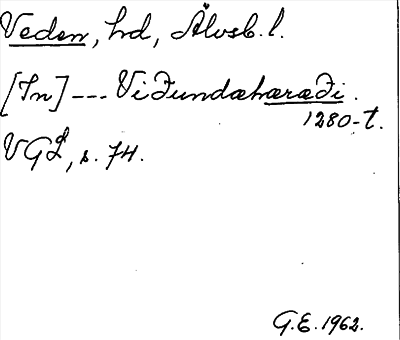 Veden, hd, Älvsb. l.
[In] --- Viðundæhæræði.
1280-t.
VGL, s. 74.
G.E. 1962.